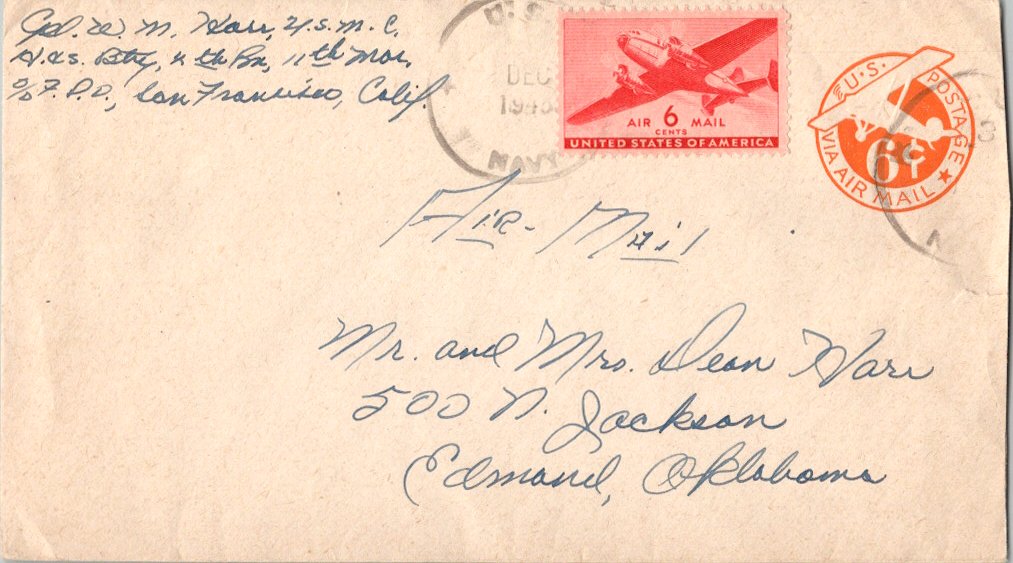 Cpl. W. M. Harr, U.S.M.C.
H.&S. Btry, 4th Bn, 11th Mar.
c/o F.P.O., San Francisco, Calif.
U.S.
NAVY
DEC
1943
AIR 6 MAIL
CENTS
UNITED STATES OF AMERICA
U.S. POSTAGE
6¢
VIA AIR MAIL
Air-Mail
Mr. and Mrs. Dean Harr
500 N. Jackson
Edmond, Oklahoma